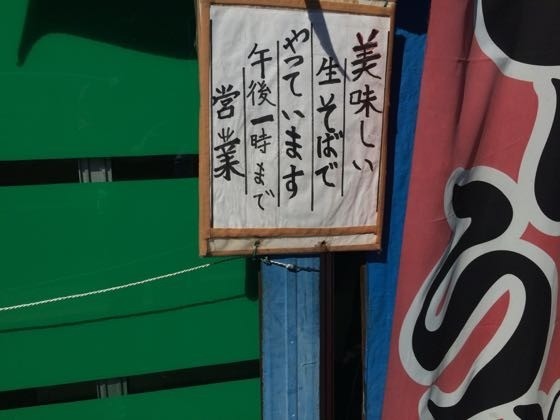 美味しい
生そばで
やっています
午後一時まで
営業